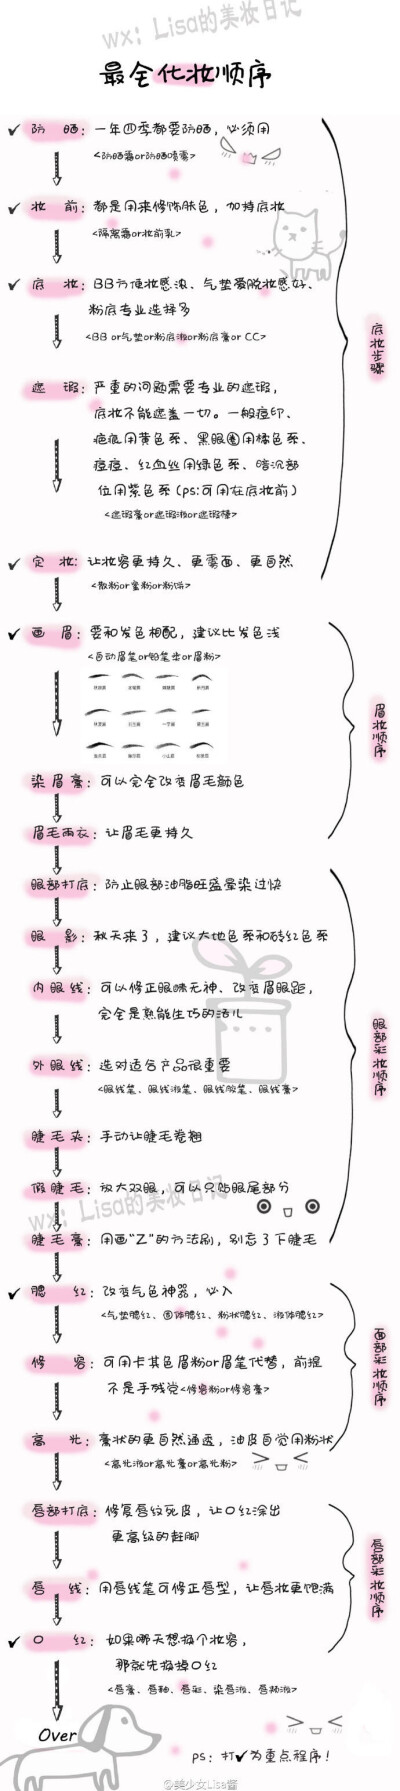 wx: Lisa的美妆日记
最全化妆顺序
✔ 防晒: 一年四季都要防晒，必须用
<防晒霜or防晒喷雾>
✔ 妆前: 都是用来修饰肤色，加持底妆
<隔离霜or妆前乳>
✔ 底妆: BB方便妆感浓、气垫爱脱妆感好、
粉底专业选择多
<BB or气垫or粉底液or粉底膏or CC>
底妆步骤
遮瑕: 严重的问题需要专业的遮瑕，
底妆不能遮盖一切。一般痘印、
疤痕用黄色系、黑眼圈用橘色系、
痘痘、红血丝用绿色系、暗沉部
位用紫色系(ps:可用在底妆前)
<遮瑕膏or遮瑕液or遮瑕棒>
✔ 定妆: 让妆容更持久、更雾面、更自然
<散粉or蜜粉or粉饼>
✔ 画眉: 要和发色相配，建议比发色浅
<自动眉笔or铅笔类or眉粉>
眉妆顺序
染眉膏: 可以完全改变眉毛颜色
眉毛雨衣: 让眉毛更持久
眼部打底: 防止眼部油脂旺盛晕染过快
眼影: 秋天来了，建议大地色系和砖红色系
内眼线: 可以修正眼睛无神、改变眉眼距，
完全是熟能生巧的活儿
眼部彩妆顺序
外眼线: 选对适合产品很重要
<眼线笔、眼线液笔、眼线胶笔、眼线膏>
睫毛夹: 手动让睫毛卷翘
假睫毛: 放大双眼，可以只贴眼尾部分
wx: Lisa的美妆日记
睫毛膏: 用画“Z”的方法刷，别忘了下睫毛
✔ 腮红: 改变气色神器，必入
<气垫腮红、固体腮红、粉状腮红、液体腮红>
面部彩妆顺序
修容: 可用卡其色眉粉or眉笔代替，前提
不是手残党<修容粉or修容膏>
高光: 膏状的更自然通透，油皮自觉用粉状
<高光液or高光膏or高光粉>
唇部打底: 修复唇纹死皮，让口红涂出
更高级的赶脚
唇部彩妆顺序
唇线: 用唇线笔可修正唇型，让唇妆更饱满
✔ 口红: 如果哪天想换个妆容，
那就先换掉口红
<唇膏、唇釉、唇彩、染唇液、唇颊液>
Over
ps: 打✔为重点程序!
@美少女Lisa酱